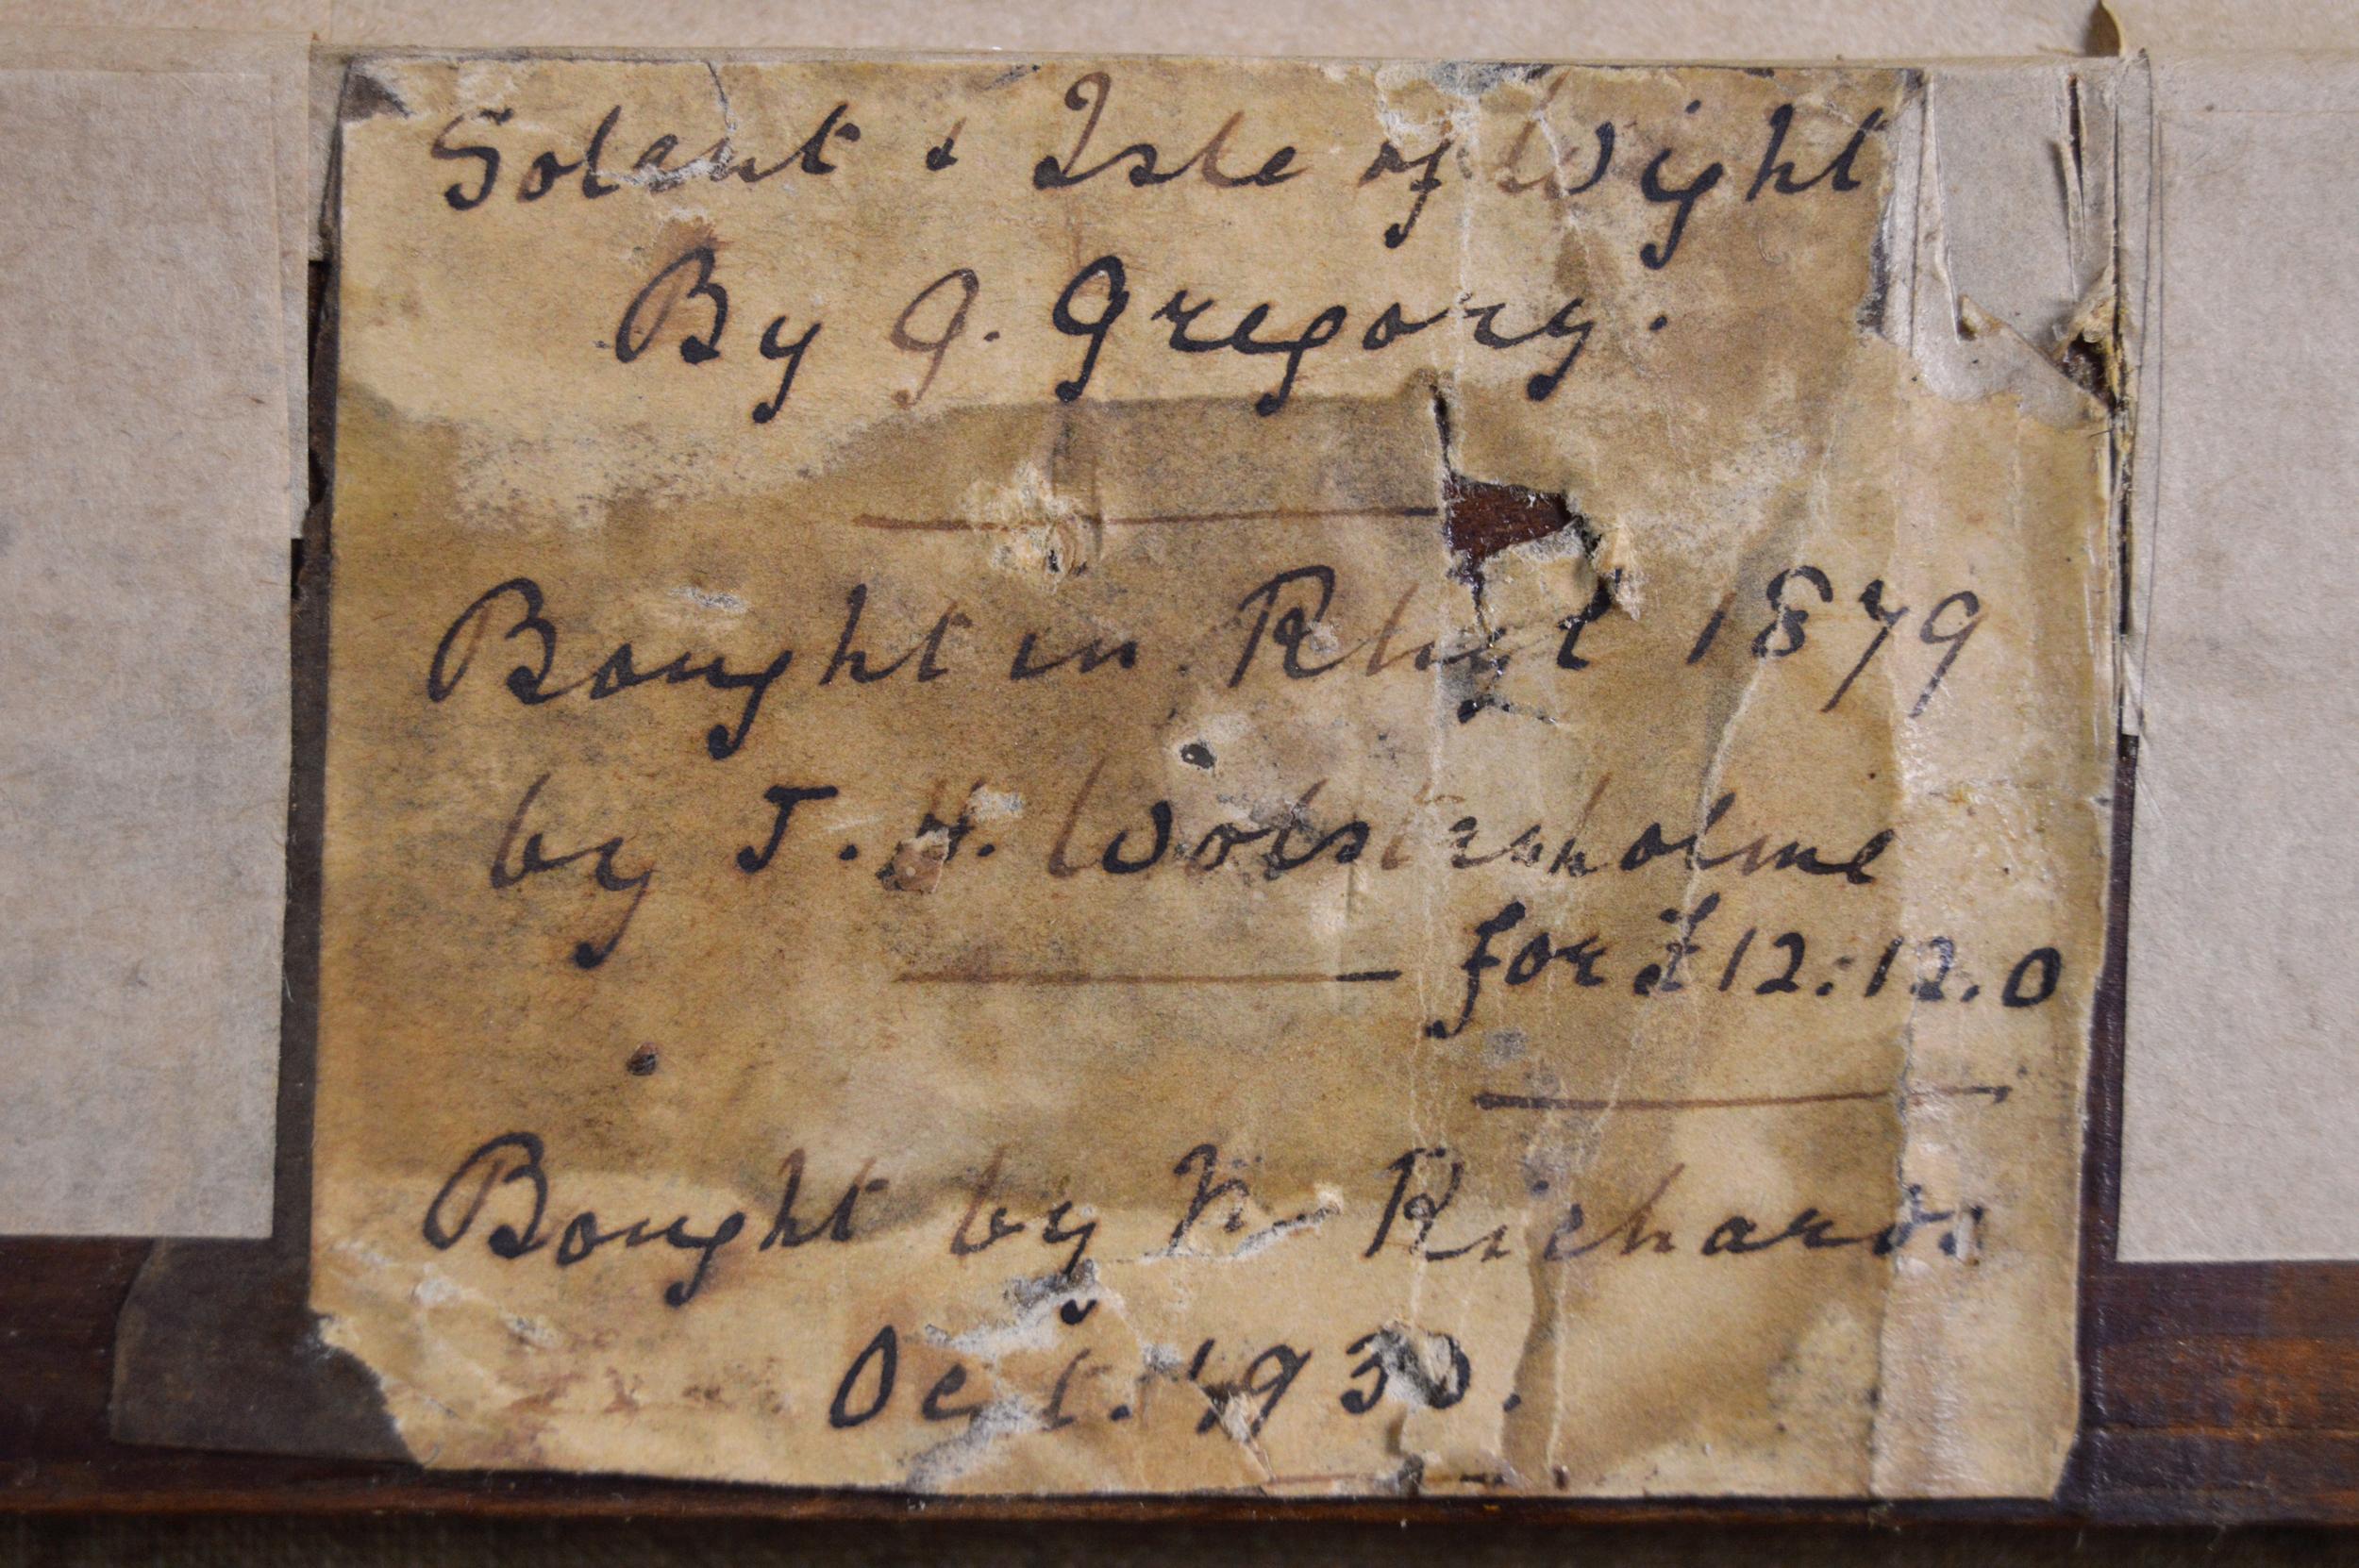 Solent & Isle of Wight
By G. Gregory.
Bought in Rhyl 1879
by T. H. Wolstenholme
for £12:12.0
Bought by Richards
Oct. 1930.